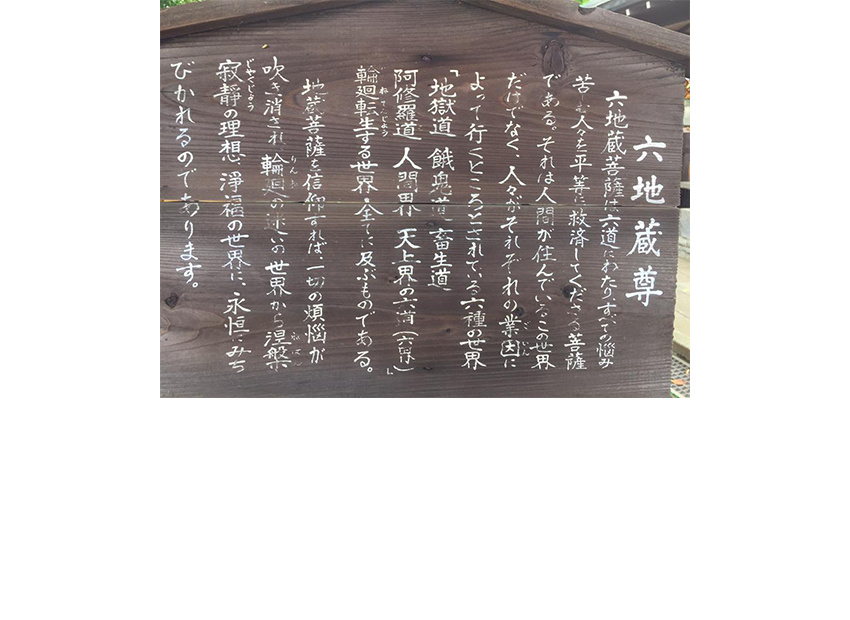 六地蔵尊
六地蔵菩薩は六道にわたりすべての悩み
苦しむ人々を平等に救済してくださる菩薩
である。それは人間が住んでいるこの世界
だけでなく、人々がそれぞれの業因に
よって行くところとされている六種の世界
「地獄道 餓鬼道 畜生道
阿修羅道 人間界 天上界の六道(六界)」
輪廻転生する世界・全てに及ぶものである。
地蔵菩薩を信仰すれば、一切の煩悩が
吹き消され、輪廻の迷いの世界から涅槃
寂静の理想、淨福の世界に、永恒にみち
びかれるのであります。